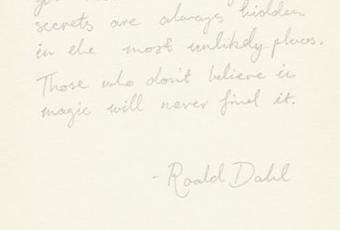 secrets are always hidden
in the most unlikely places.
Those who don't believe in
magic will never find it.
- Roald Dahl